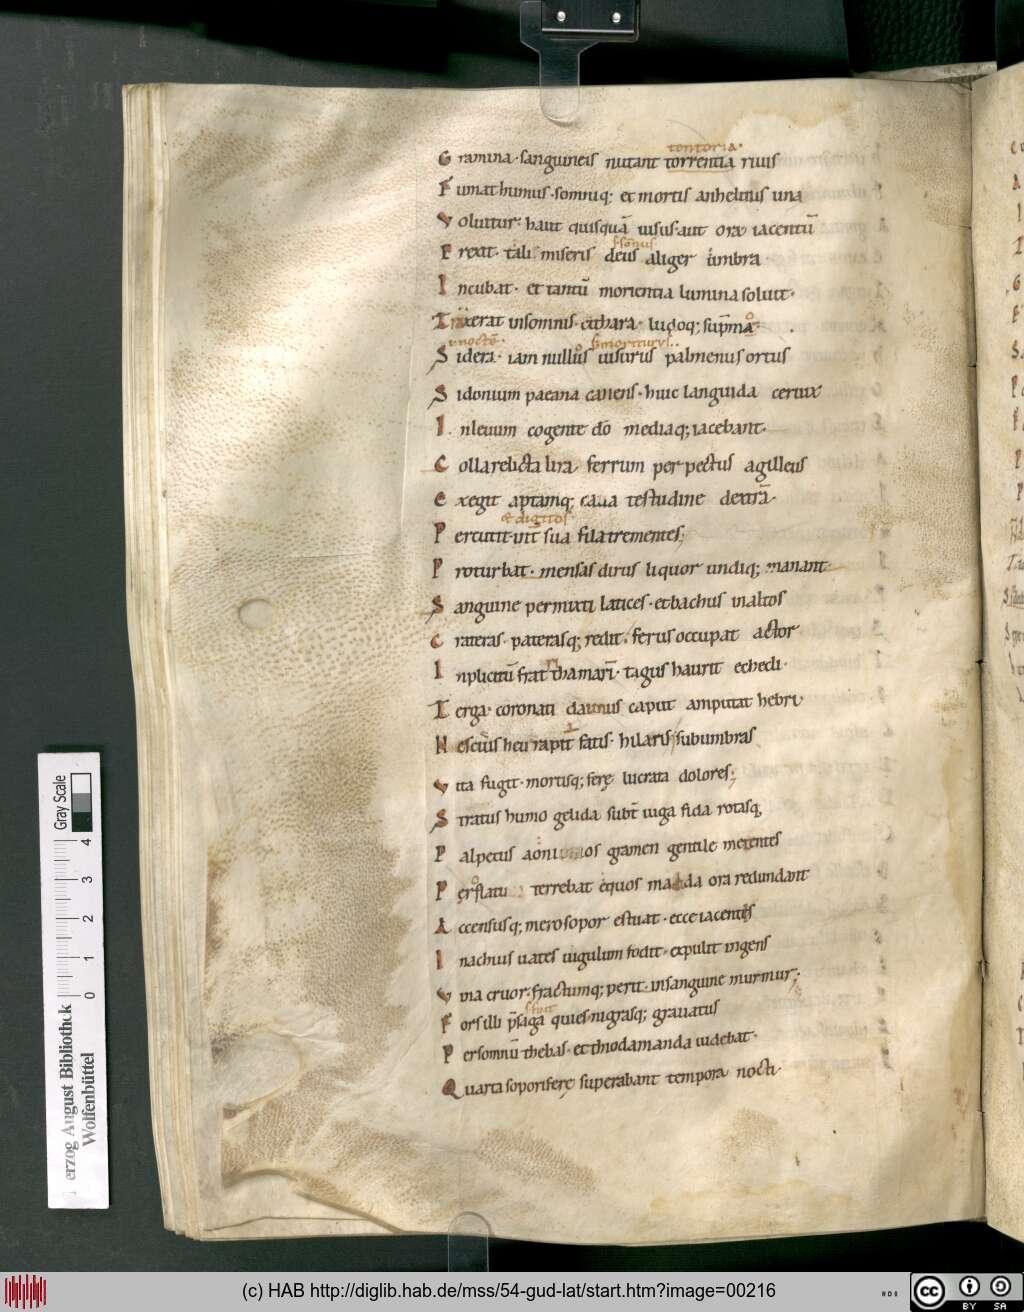 tentoria
Gramina · sanguineis nutant torrentia riuis
Fumat humus · somnuq; et mortis anhelitus una
Voluitur · haut quisquā uisus aut ora iacentū
Erexit · tali miseris deus aliger umbra ·
s somnus
Incubat · et tantū morientia lumina soluit ·
Traxerat insomnis · cithara · ludoq; sup̄ma
Sidera · iam nullos uisurus palmenus ortus
Sidonium paeana canens · huic languida ceruix
In leuum cogente dō mediaq; iacebant ·
Colla relicta lira ferrum per pectus agilleus
Exegit aptamq; caua testudine dextrā ·
& digitos
Percutit int̄ sua fila trementes;
Proturbat · mensas dirus liquor undiq; manant
Sanguine permixti latices · et bachus in altos
Crateras · paterasq; redit · ferus occupat actor
Inplicitū frat̄ thamarī · tagus haurit echecli ·
Terga · coronati danaus caput amputat hebri
Nescius heu rapit fatis · hilaris sub umbras
Vita fugit · mortisq; ferę lucrata dolores;
Stratus humo gelida subt̄ iuga fida rotasq;
Palpetus aoni os gramen gentile metentes
Perflatu terrebat equos ma da ora redundant
Accensusq; mero sopor estuat · ecce iacentis
Inachius uates iugulum fodit · expulit ingens
Vina cruor · fractumq; perit · in sanguine murmur;
fuit
Fors illi p̄saga quies · nigrasq; grauatus
Per somnū thebas · et thiodamanda uidebat ·
Quarta soporiferę superabant tempora nocti
erzog August Bibliothek
Wolfenbüttel
0 1 2 3 4
Gray Scale
(c) HAB http://diglib.hab.de/mss/54-gud-lat/start.htm?image=00216
cc BY SA